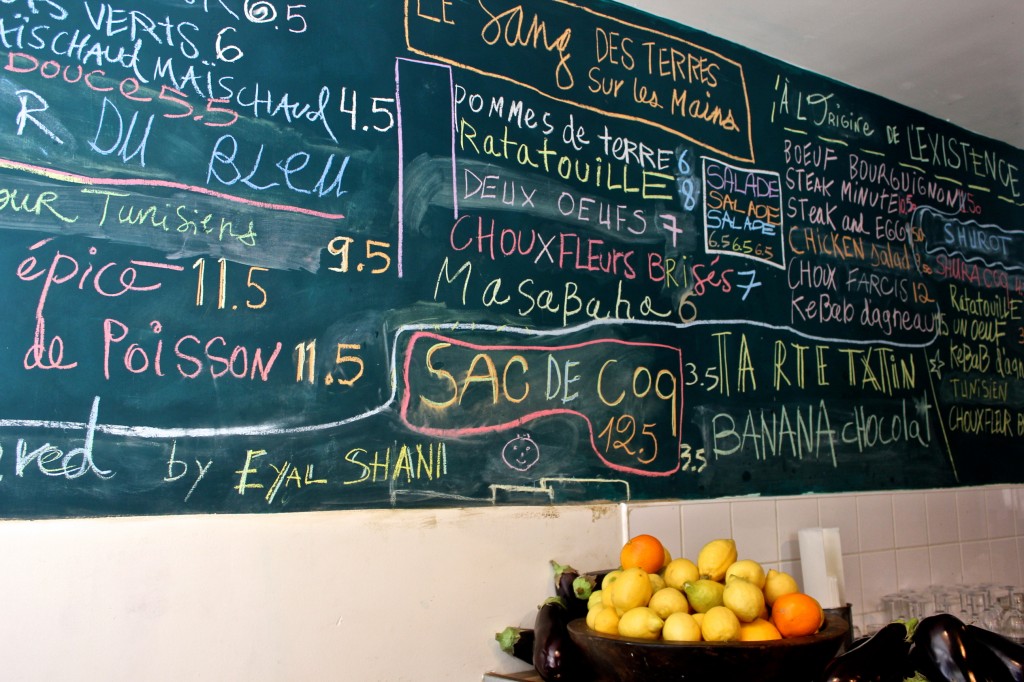 VERTS 6
MAÏSCHAUD 4.5
DOUCE 5.5
R DU BLEU
OUR TUNISIENS
9.5
épicé 11.5
de POISSON 11.5
red by EYAL SHANI
LE Sang DES TERRES
sur les Mains
POMMES de TERRE 6
Ratatouille 8
DEUX OEUFS 7
CHOUXFLEURS BRisés 7
MasaBaha 6
SALADE
SALADE
SALADE
6.5 6.5 6.5
SAC DE Coq
12.5
3.5 TARTE TATIN
BANANA chocolat
3.5
À L'Origine DE L'EXISTENCE
BOEUF BOURGUIGNON
STEAK MINUTE
STEAK and EGG
CHICKEN Salad
CHOUX FARCIS 12
KeBaB d'agneau
SHUROT
SHURA COQ
Ratatouille
UN OEUF
KeBaB d'agn
TUNISIEN
CHOUXFLEUR B